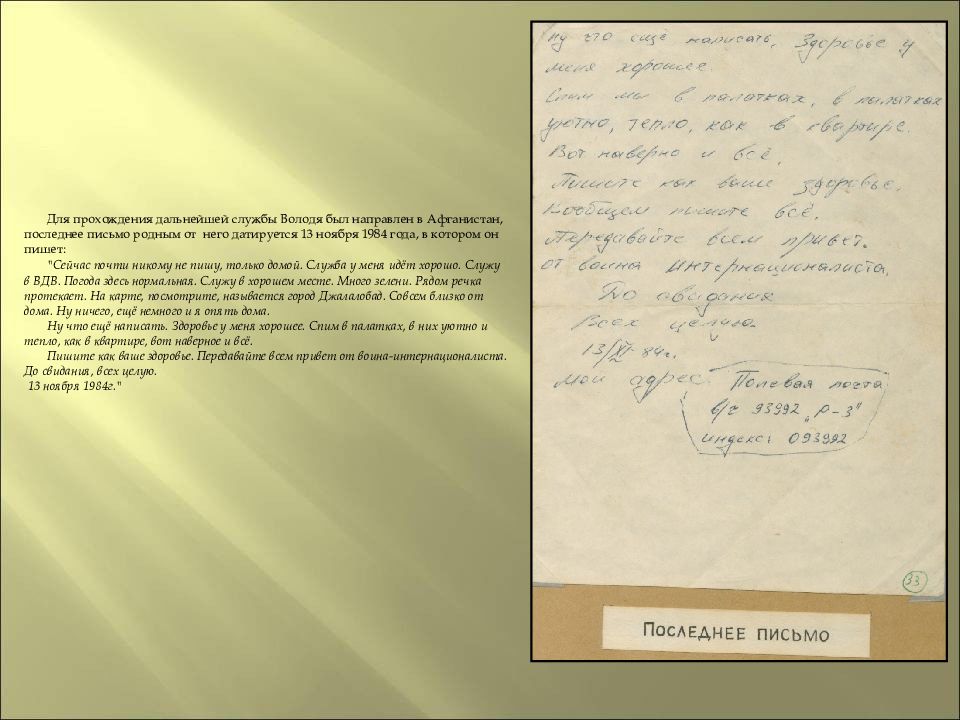 Для прохождения дальнейшей службы Володя был направлен в Афганистан,
последнее письмо родным от него датируется 13 ноября 1984 года, в котором он
пишет:
"Сейчас почти никому не пишу, только домой. Служба у меня идёт хорошо. Служу
в ВДВ. Погода здесь нормальная. Служу в хорошем месте. Много зелени. Рядом речка
протекает. На карте, посмотрите, называется город Джалалобад. Совсем близко от
дома. Ну ничего, ещё немного и я опять дома.
Ну что ещё написать. Здоровье у меня хорошее. Спим в палатках, в них уютно и
тепло, как в квартире, вот наверное и всё.
Пишите как ваше здоровье. Передавайте всем привет от воина-интернационалиста.
До свидания, всех целую.
13 ноября 1984г."
ну что ещё написать, Здоровье у
меня хорошее.
Спим мы в палатках, в палатках
уютно, тепло, как в квартире.
Вот наверно и всё.
Пишите как ваше здоровье.
Вообщем пишите всё.
Передавайте всем привет.
от воина интернационалиста.
До свидания
Всех целую.
13/XI-84г.
мой адрес: Полевая почта
в/ч 93992 „Р-3"
индекс: 093992
33
Последнее письмо